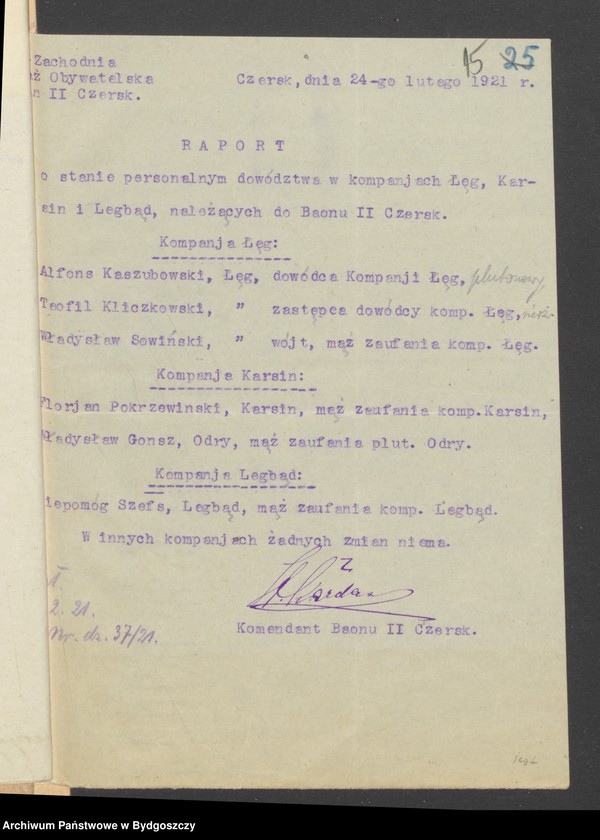 15 25
Zachodnia
ż Obywatelska
n II Czersk.
Czersk, dnia 24-go lutego 1921 r.
RAPORT
o stanie personalnym dowództwa w kompanjach Łęg, Kar-
sin i Legbąd, należących do Baonu II Czersk.
Kompanja Łęg:
Alfons Kaszubowski, Łęg, dowódca Kompanji Łęg, plutonowy,
Teofil Kliczkowski, " zastępca dowódcy komp. Łęg,
Władysław Sowiński, " wójt, mąż zaufania komp. Łęg.
Kompanja Karsin:
Florjan Pokrzewinski, Karsin, mąż zaufania komp.Karsin,
Władysław Gonsz, Odry, mąż zaufania plut. Odry.
Kompanja Legbąd:
iepomóg Szefs, Legbąd, mąż zaufania komp. Legbąd.
W innych kompanjach żadnych zmian niema.
2. 21.
Nr. dz. 37/21.
Komendant Baonu II Czersk.
Archiwum Państwowe w Bydgoszczy